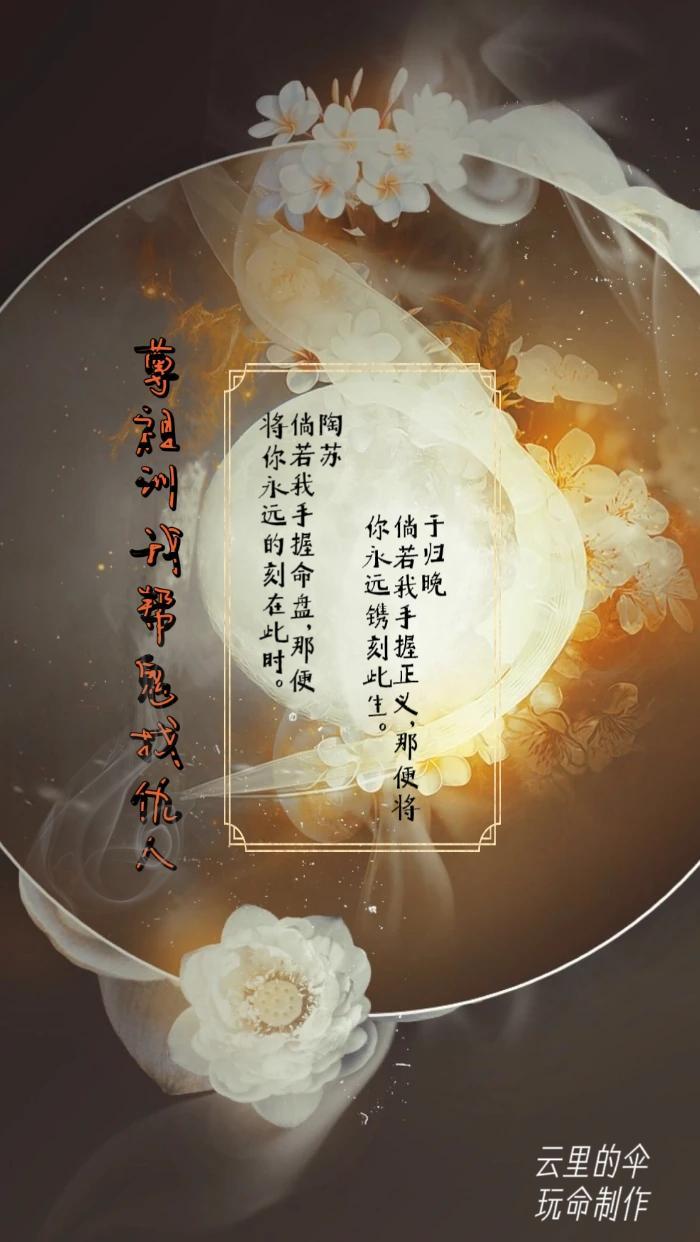 尊祖训我帮鬼找仇人
于归晚
倘若我手握正义，那便将
你永远镌刻此生。
陶苏
倘若我手握命盘，那便
将你永远的刻在此时。
云里的伞
玩命制作